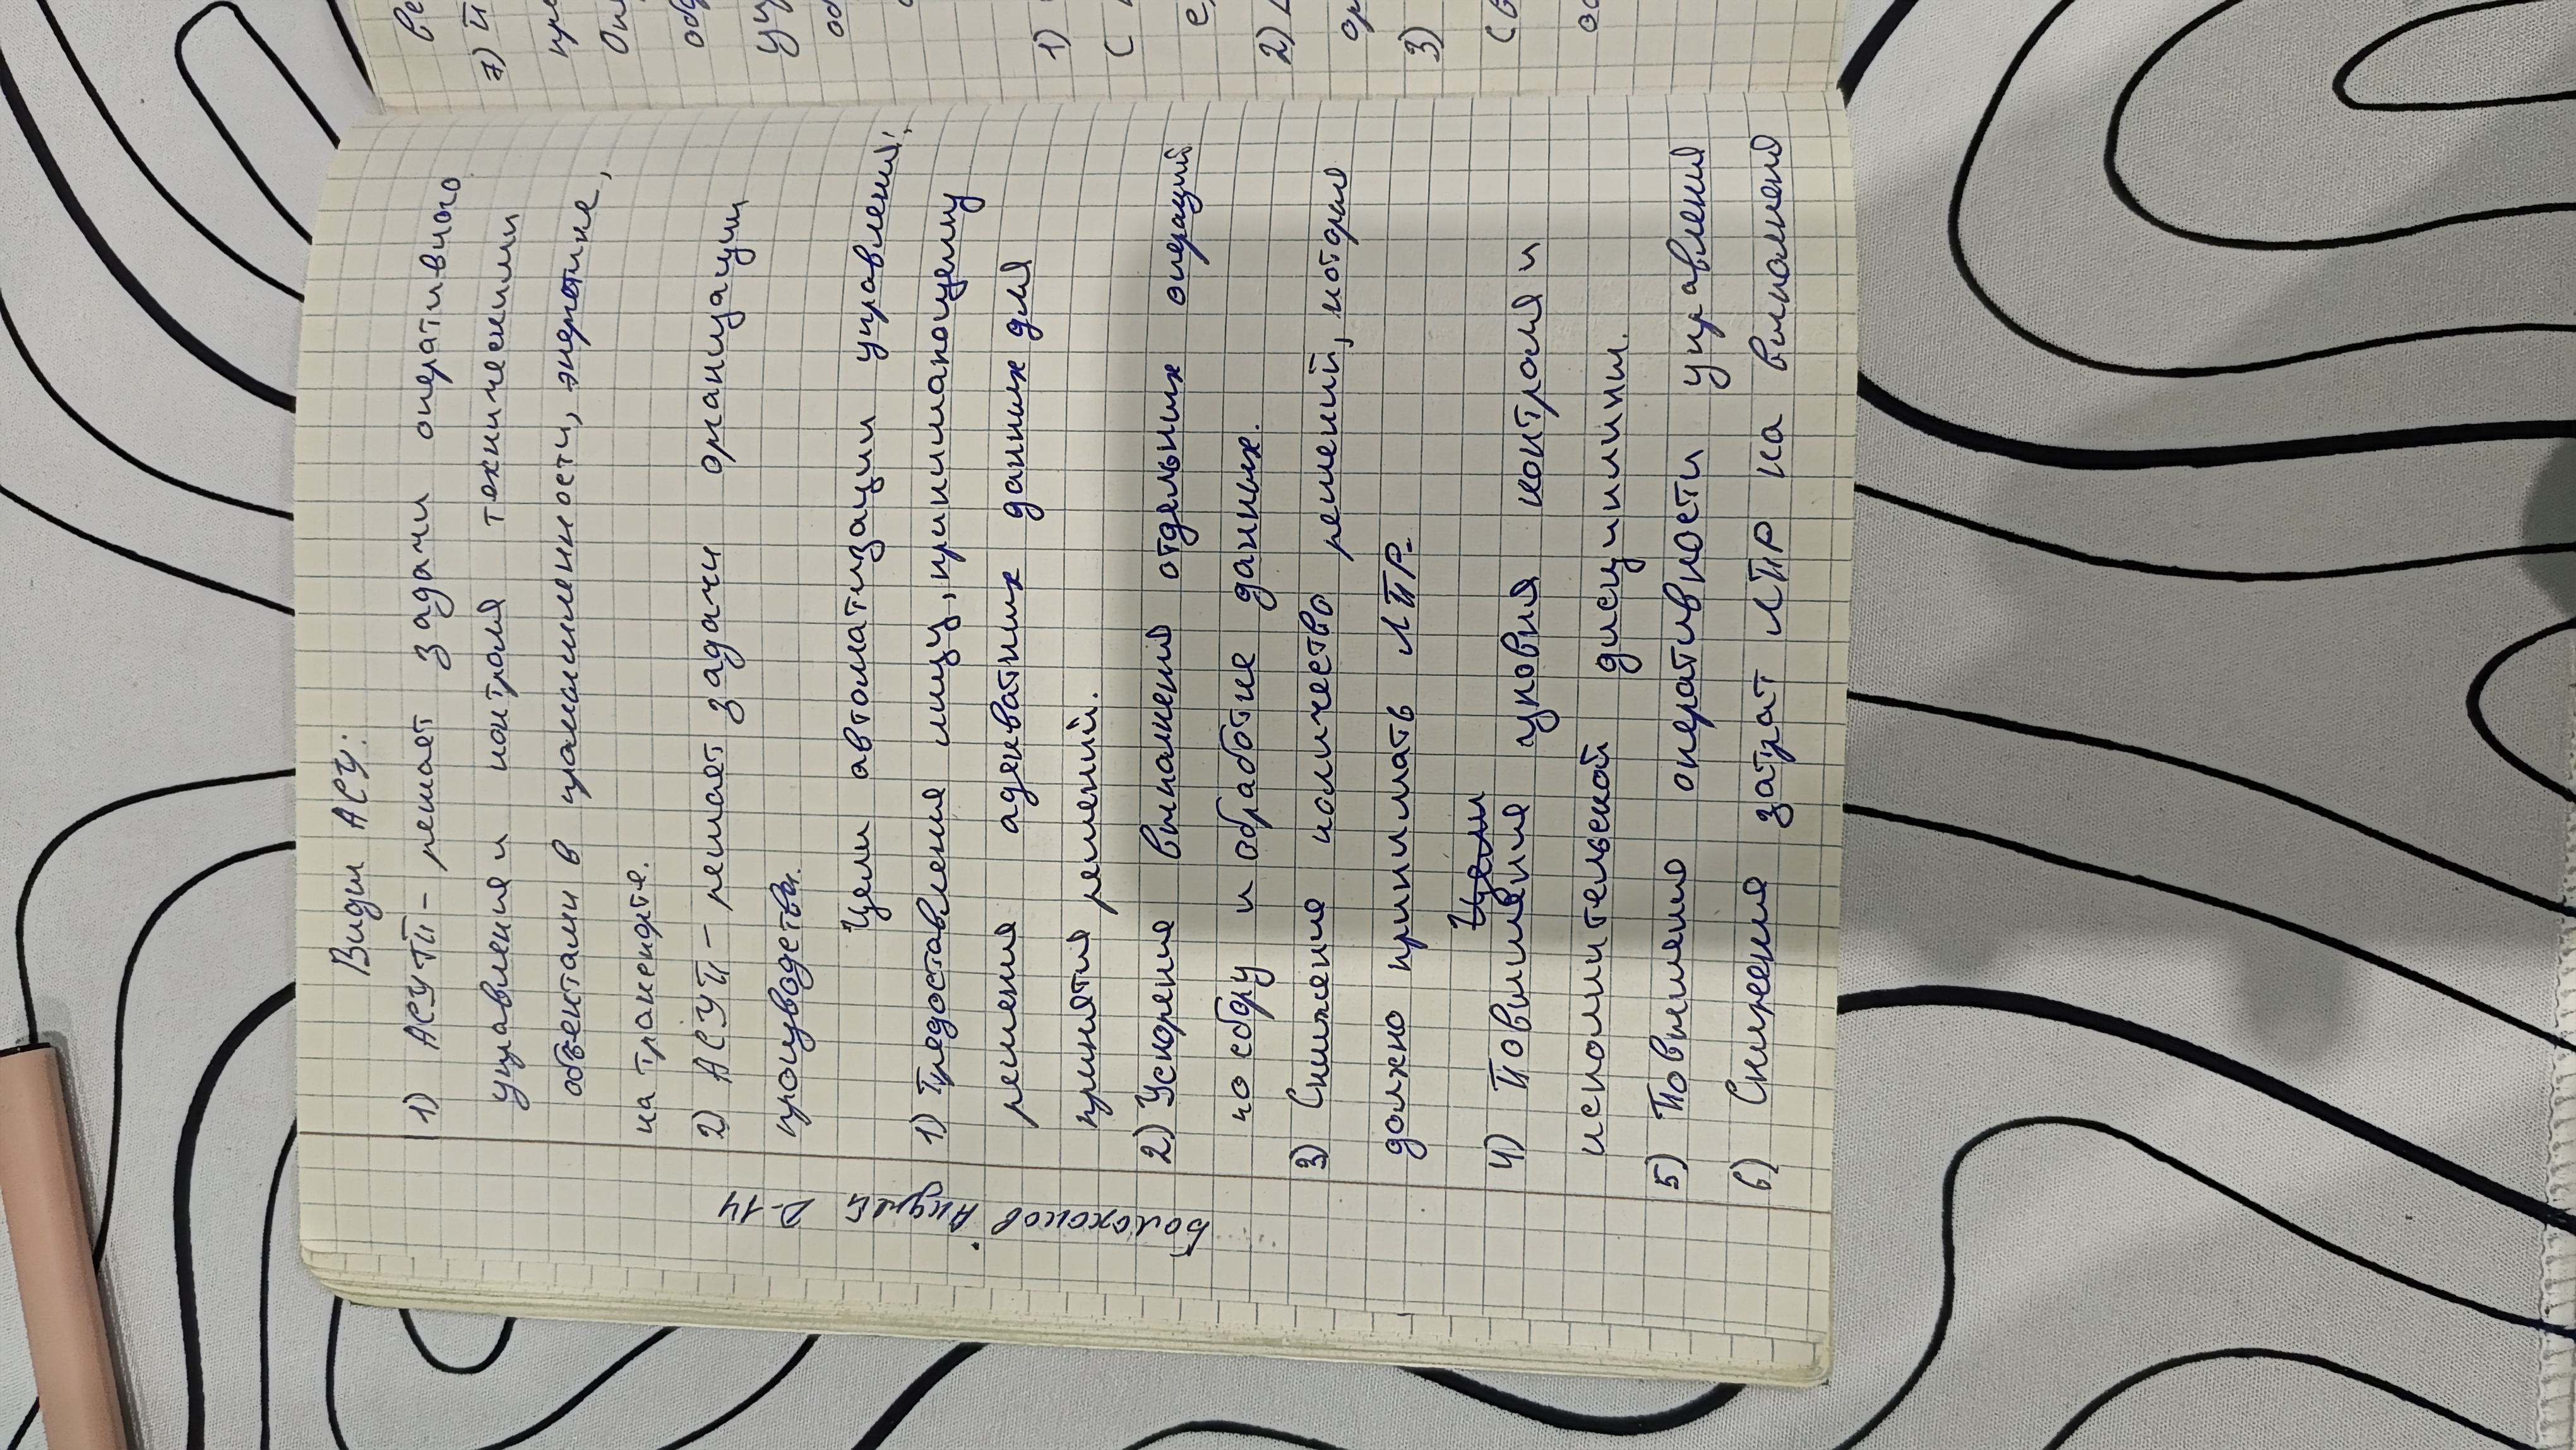 Виды АСУ:
1) АСУТП - решает задачи оперативного
управления и контроля техническими
объектами в промышленности, энергетике,
на транспорте.
2) АСУП - решает задачи организации
производства.
Цели автоматизации управления:
1) Предоставление лицу, принимающему
решения адекватных данных для
принятия решений.
2) Ускорение выполнения отдельных операций
по сбору и обработке данных.
3) Снижение количество решений, которые
должно принимать ЛПР.
Цели
4) Повышение уровня контроля и
исполнительской дисциплины.
5) Повышение оперативности управления
6) Снижение затрат ЛПР на выполнение
Болохонов Андрей Р-14
7)
1)
2)
3)